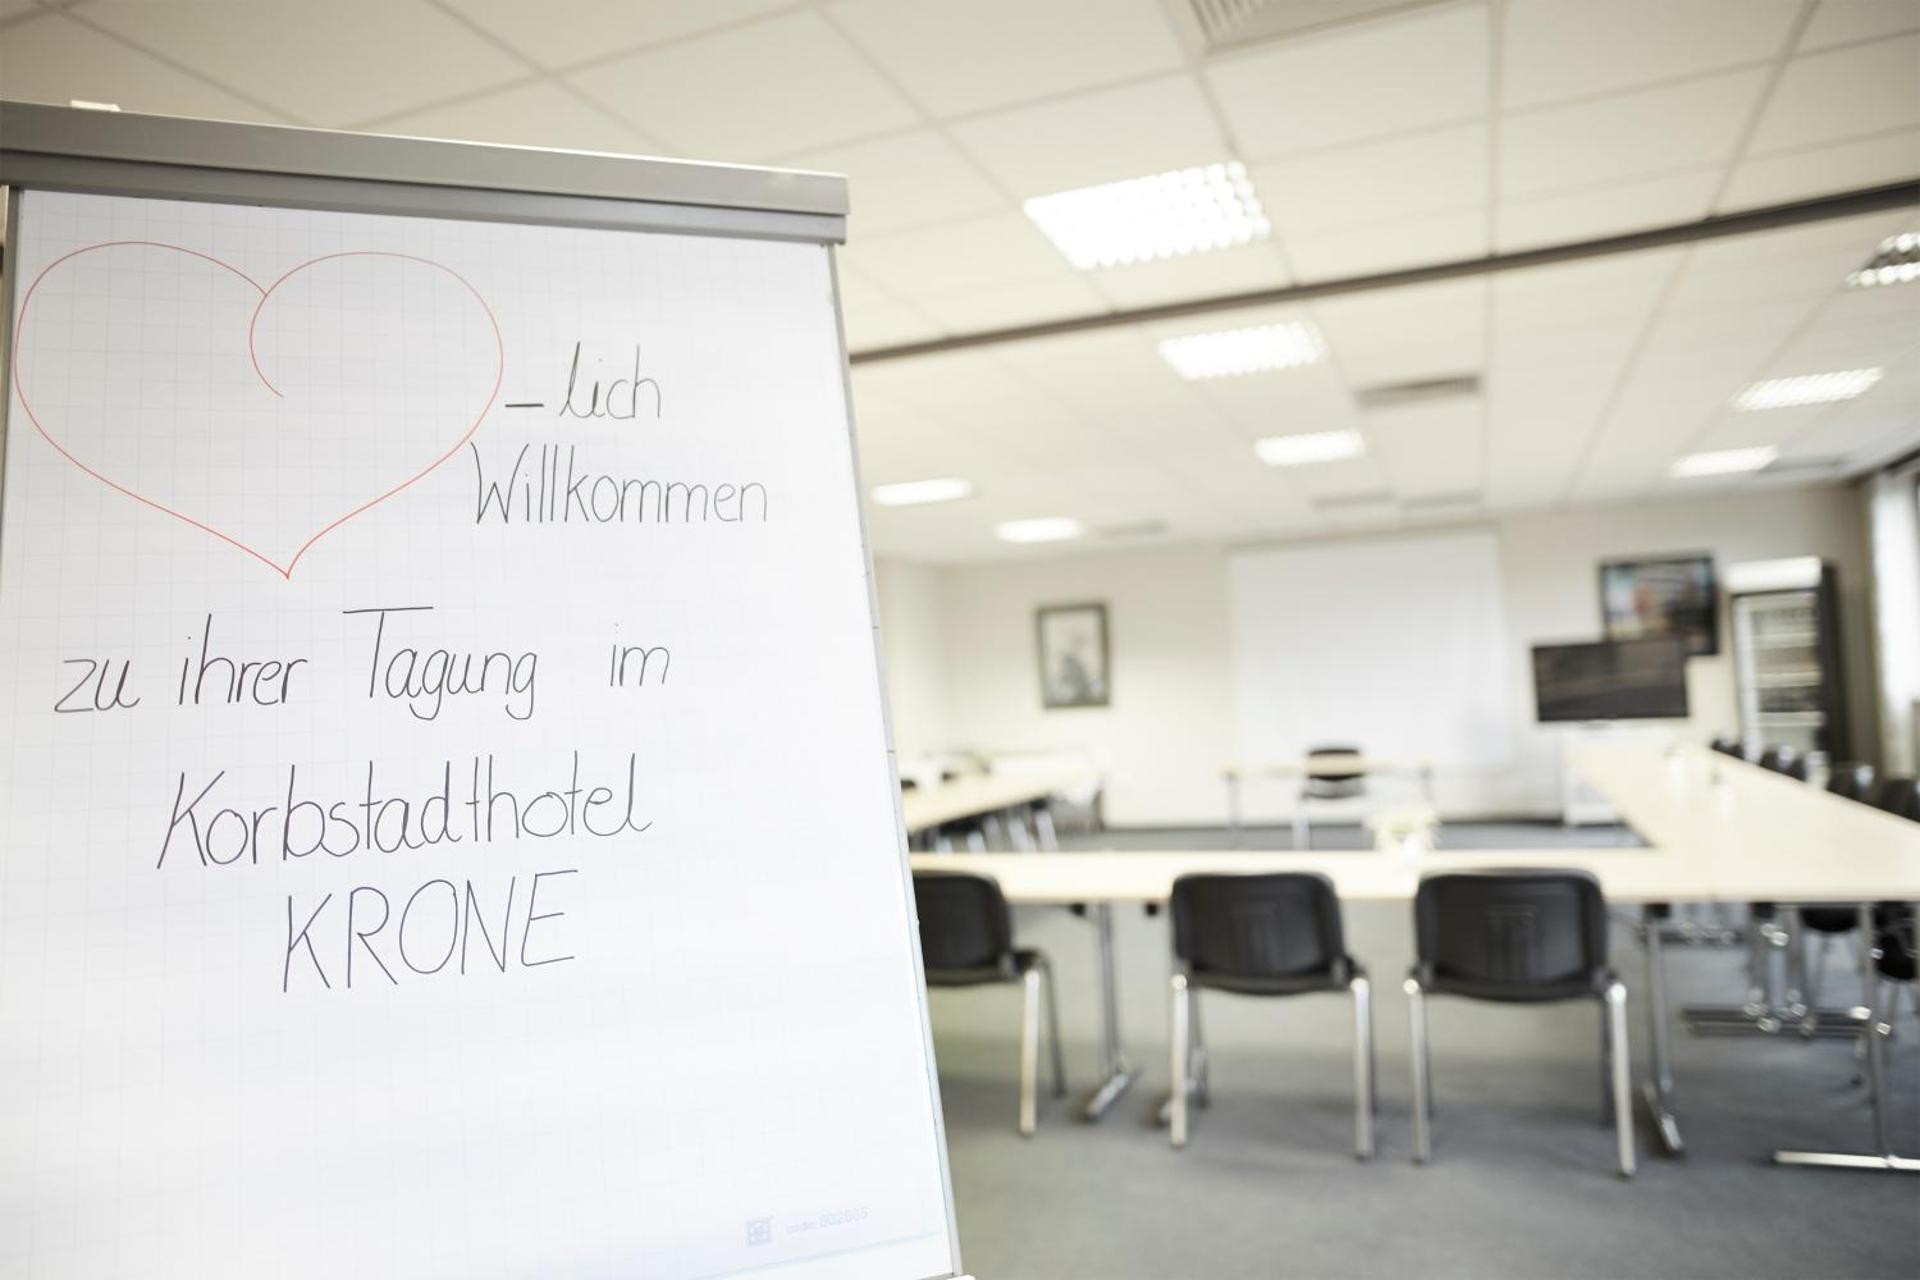 -lich
Willkommen
zu ihrer Tagung im
Korbstadthotel
KRONE
code: 602665